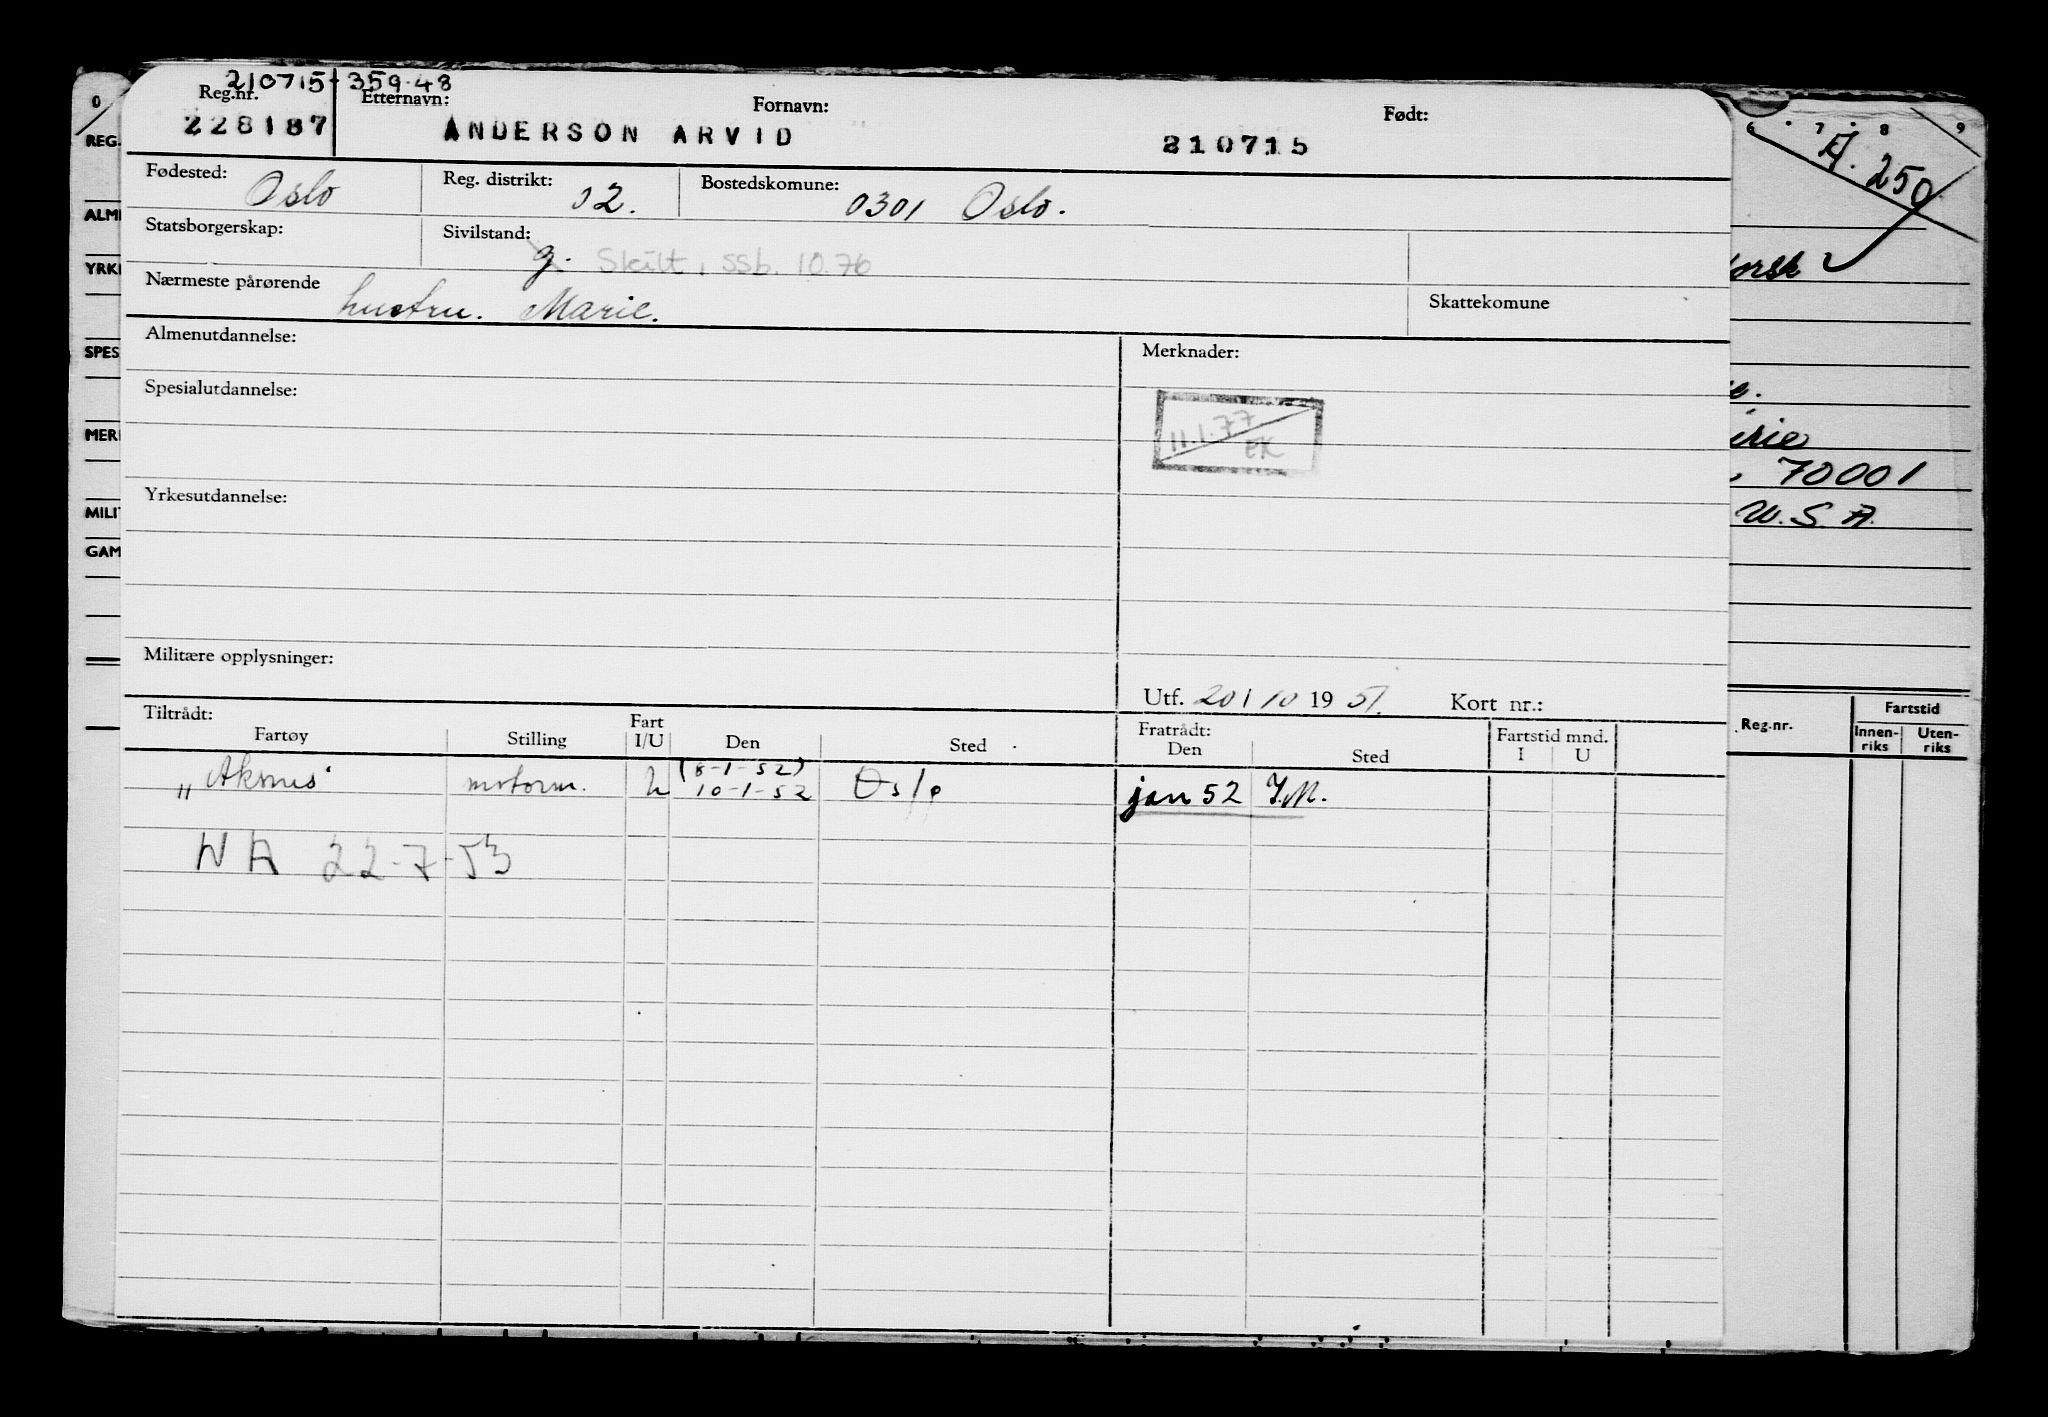 210715-359.48
Reg.nr. Etternavn: Fornavn: Født:
228187 ANDERSON ARVID 210715
Fødested: Oslo Reg. distrikt: 02. Bostedskomune: 0301 Oslo.
Statsborgerskap: Sivilstand: g. Skilt, SSb. 10.76
Nærmeste pårørende hustru. Marie. Skattekomune
Almenutdannelse: Merknader:
Spesialutdannelse:
11.1.77
EK
Yrkesutdannelse:
Militære opplysninger:
Utf. 20/10 1951. Kort nr.:
Tiltrådt: Fart Fratrådt: Fartstid mnd.
Fartøy Stilling I/U Den Sted Den Sted I U
(8-1-52)
"Aksnes" motorm. U 10-1-52 Oslo jan 52 I.M.
NA 22-7-53
0
REG.
ALM
YRK
SPES
MER
MILI
GAM
6 7 8 9
A. 250
orsk
70001
U.S.A.
Reg.nr. Fartstid
Innen-
riks Uten-
riks